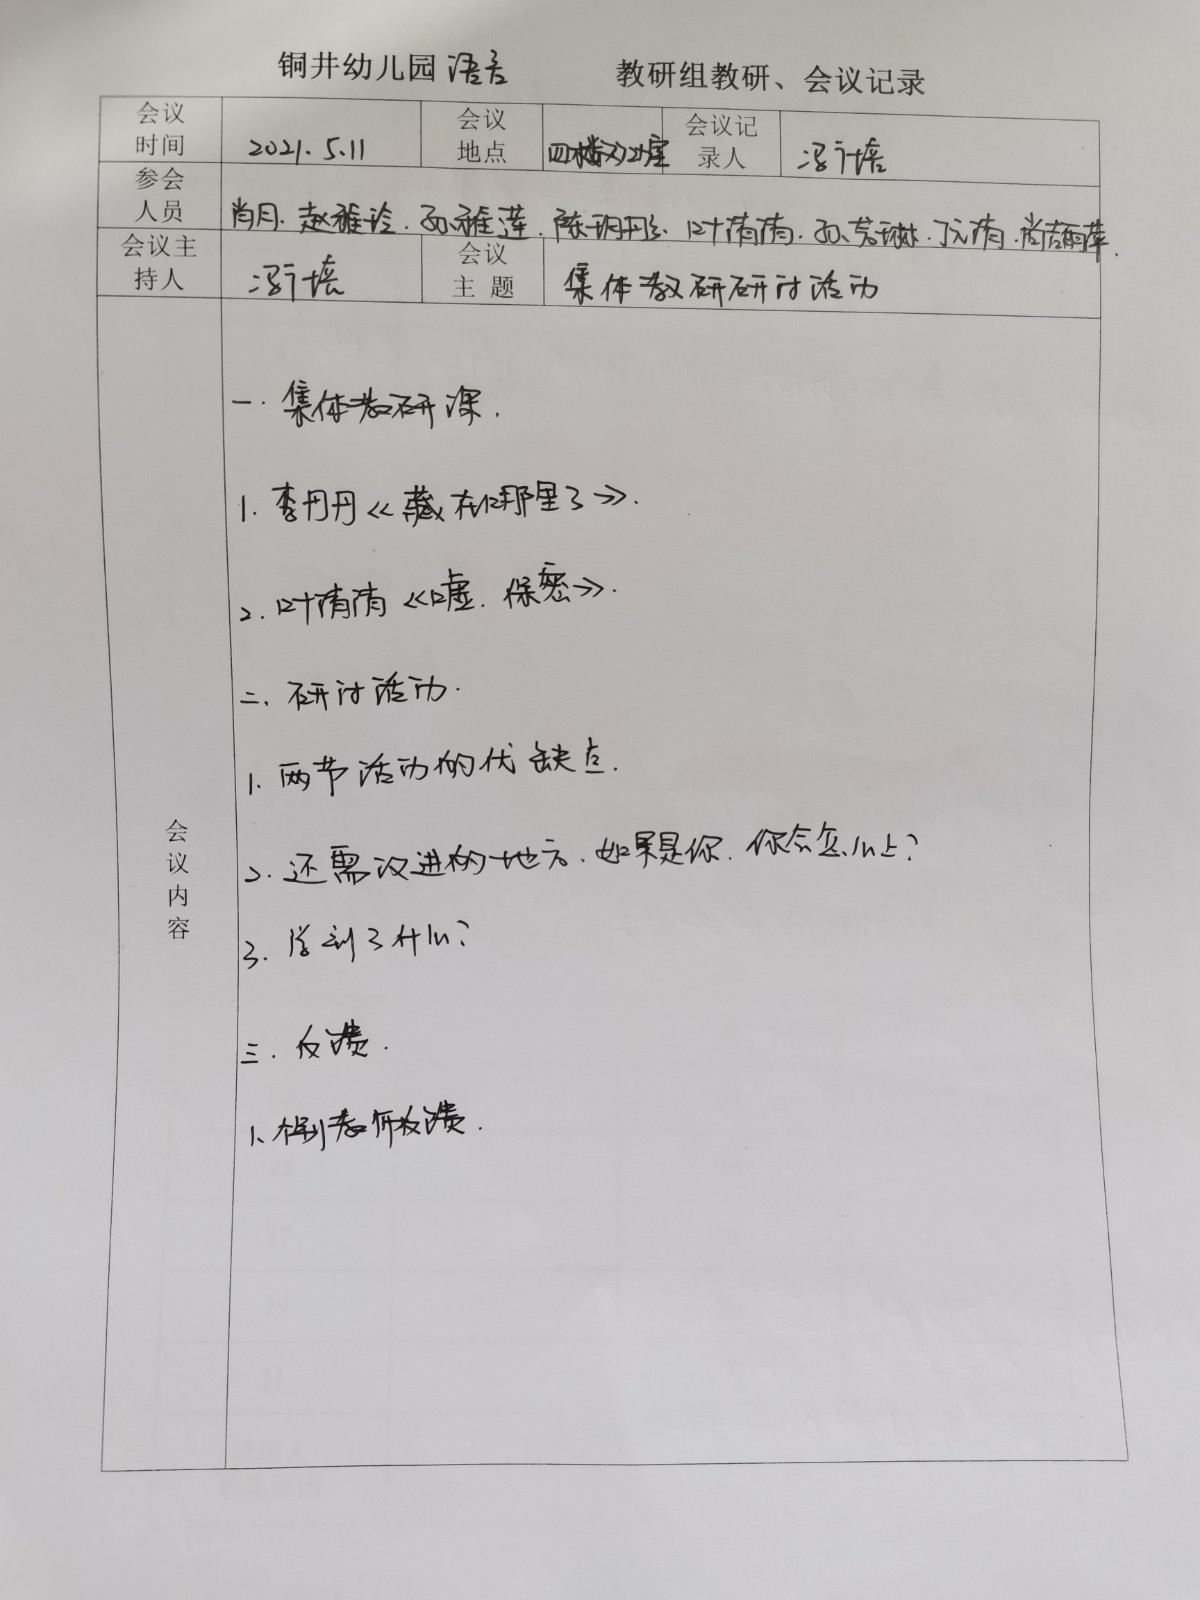 铜井幼儿园 语言 教研组教研、会议记录
会议时间 2021.5.11 会议地点 四楼 会议记录人 培
参会人员 肖月. 赵雅玲. 孙雅莲. 陈玥彤. 叶倩倩. 孙 琳. 丁元倩. 尚
会议主持人 培 会议主题 集体教研研讨活动
会议内容
一. 集体教研课.
1. 李丹丹《藏在哪里了》.
2. 叶倩倩《嘘. 保密》.
二、研讨活动.
1. 两节活动的优缺点.
2. 还需改进的地方. 如果是你. 你会怎么上?
3. 学到了什么?
三. 反馈.
1、 教研反馈.